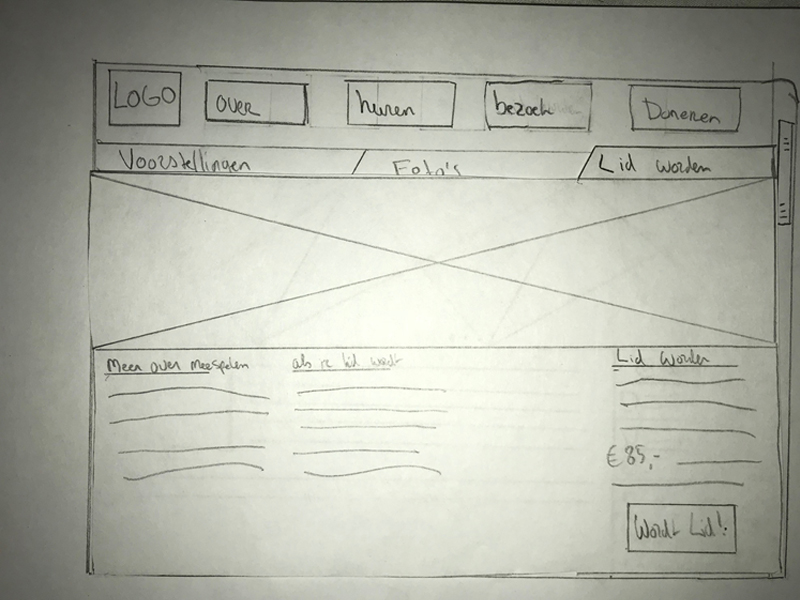 LOGO
over
huren
bezoek
Doneren
Voorstellingen
Foto's
Lid worden
Meer over meespelen
als je lid wordt
Lid worden
€85,-
Wordt Lid!